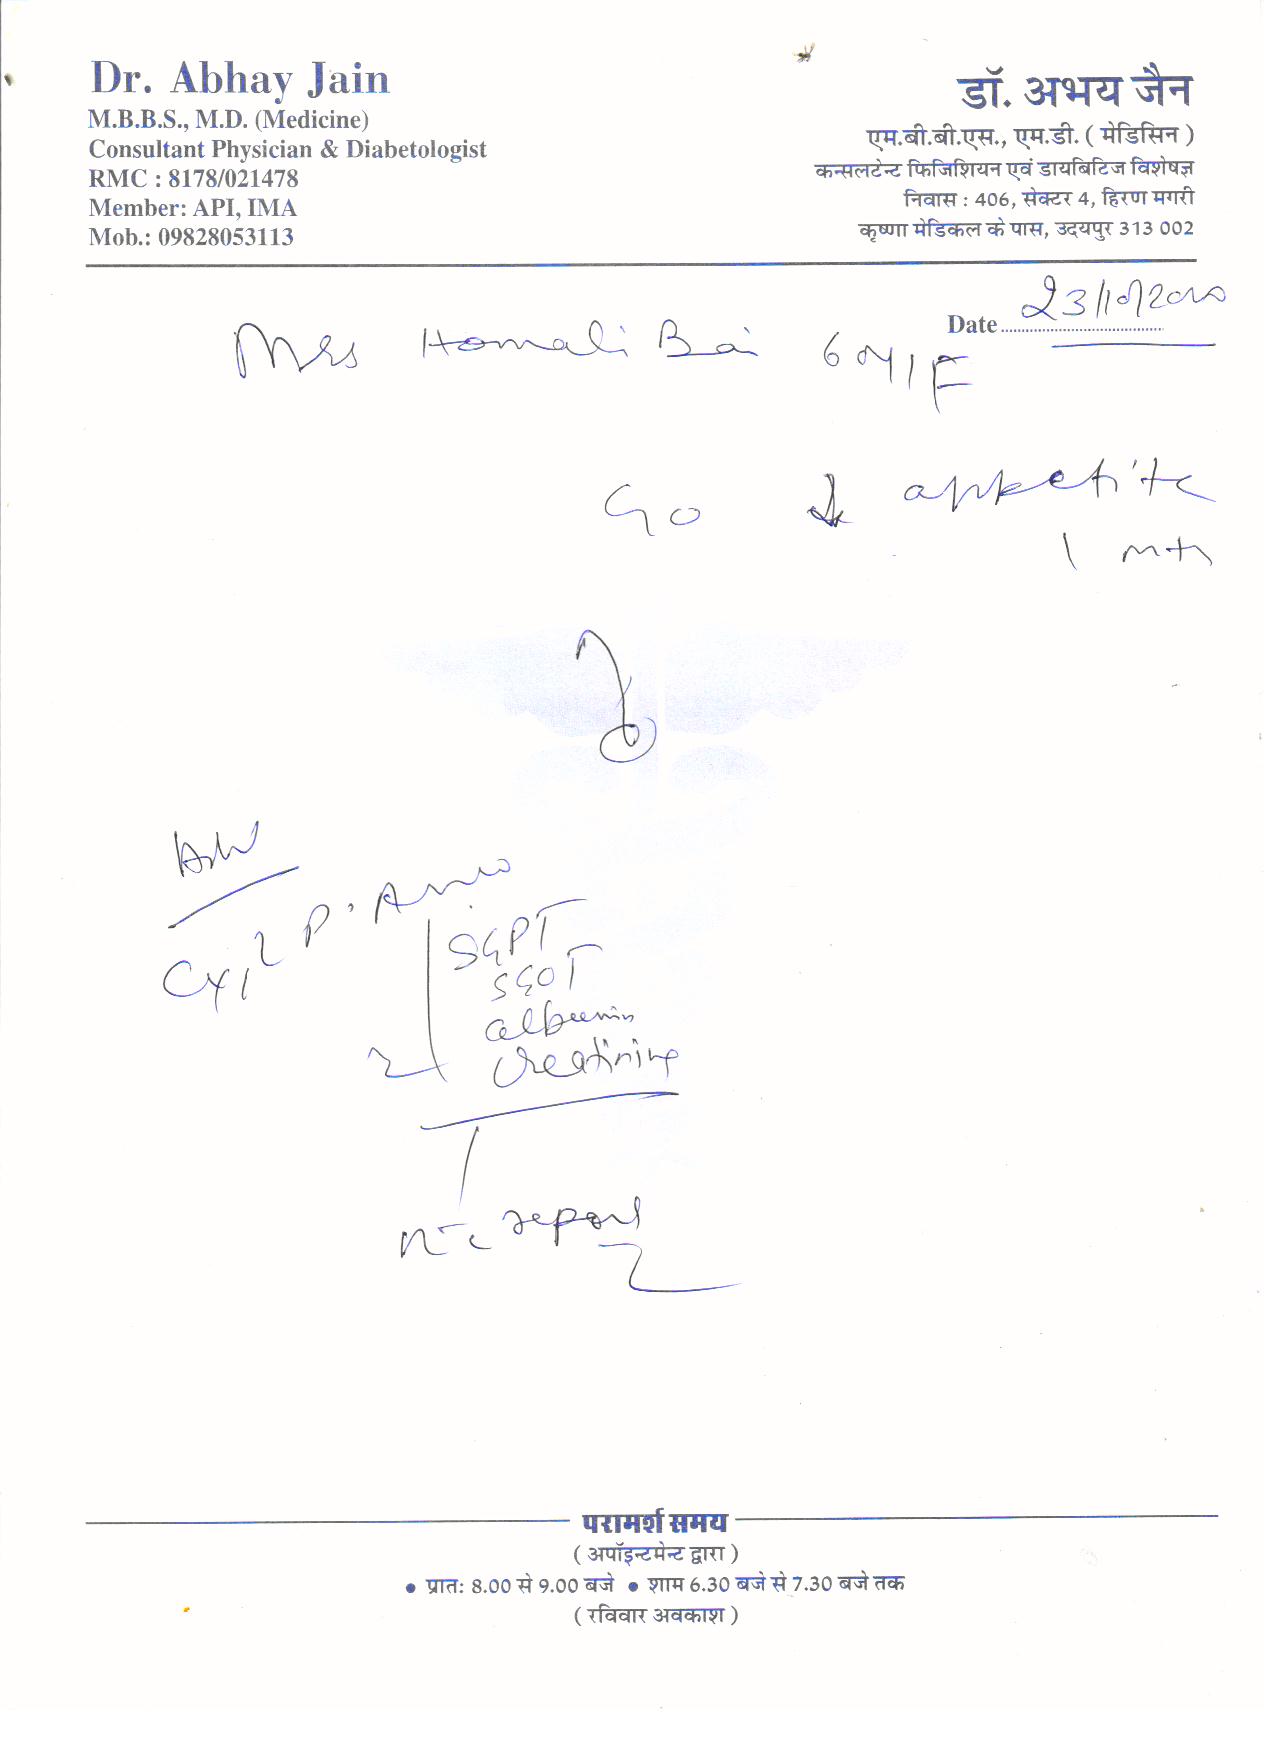 Dr. Abhay Jain
M.B.B.S., M.D. (Medicine)
Consultant Physician & Diabetologist
RMC : 8178/021478
Member: API, IMA
Mob.: 09828053113
डॉ. अभय जैन
एम.बी.बी.एस., एम.डी. ( मेडिसिन )
कन्सलटेन्ट फिजिशियन एवं डायबिटिज विशेषज्ञ
निवास : 406, सेक्टर 4, हिरण मगरी
कृष्णा मेडिकल के पास, उदयपुर 313 002
Date 23/10/2020
Mrs Homali Bai 60y/F
appetite
1 mth
Adv
SGPT
SGOT
albumin
creatinine
report
परामर्श समय
( अपॉइन्टमेन्ट द्वारा )
• प्रातः 8.00 से 9.00 बजे • शाम 6.30 बजे से 7.30 बजे तक
( रविवार अवकाश )